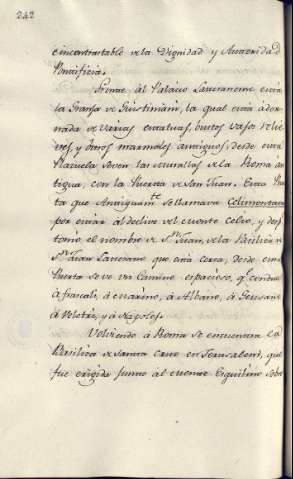 242
incontrastable de la Dignidad y Autoridad
Pontificia.
Frente al Palacio Lateranense está
la Granja de Giustiniani, la qual está ador
nada de varias estatuas, bustos vasos relie
ves, y otros marmoles antiguos; desde esta
Plazuela se ven las Murallas de la Roma an
tigua, con la Puerta de San Juan. Esta Pu
ta que Antiguam.te se llamava Celimontana
por estar al declive del Monte Celio, y desp
tomó el nombre de S.n Juan, de la Basilica
S.n Juan Laterano que está cerca, desde esta
Puerta se ve un Camino espacioso, q.e conduce
à Frascati, à Marino, à Albano,
à Veletri, y à Napoles.
Volviendo à Roma se encuentra la
Basilica de Santa Cruz en Jerusalem, que
fue erigida junto al Monte Esquilino sobre